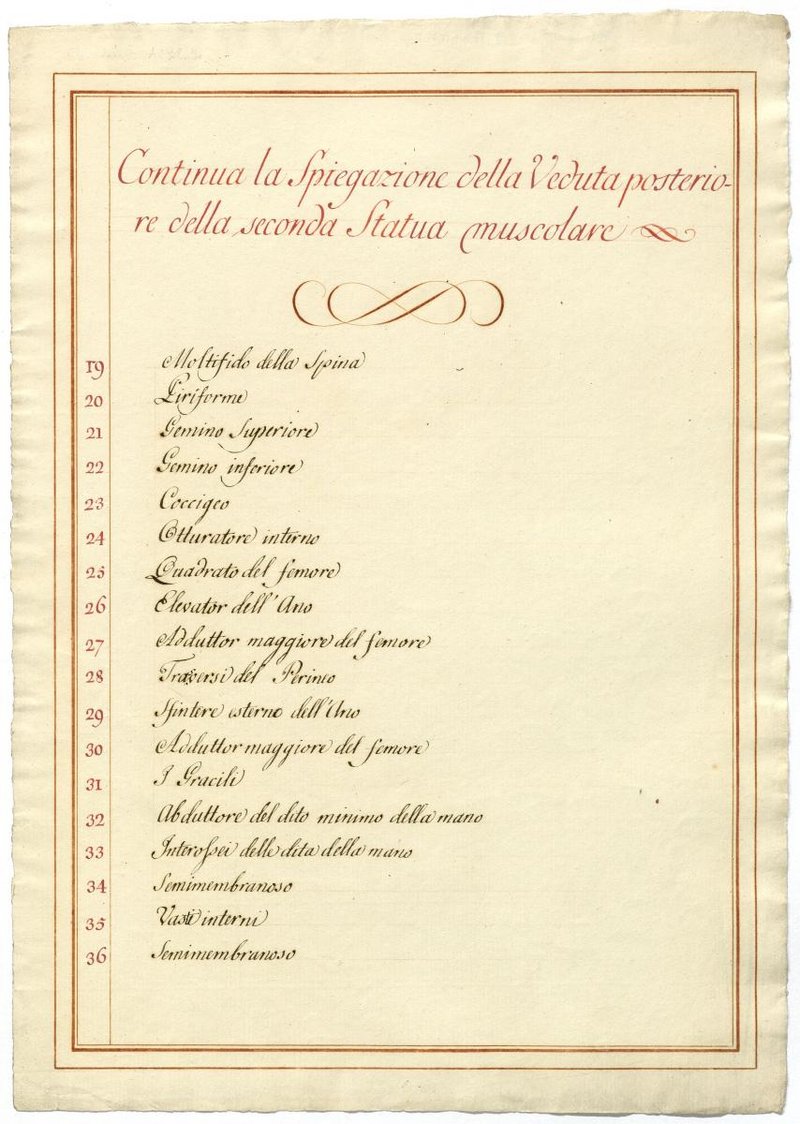 Continua la Spiegazione della Veduta posterio-
re della seconda Statua muscolare
19 Moltifido della Spina
20 Piriforme
21 Gemino Superiore
22 Gemino inferiore
23 Coccigeo
24 Otturatore interno
25 Quadrato del femore
26 Elevator dell' Ano
27 Adduttor maggiore del femore
28 Trasversi del Perineo
29 Sfintere esterno dell'Ano
30 Adduttor maggiore del femore
31 I Gracili
32 Abduttore del dito minimo della mano
33 Interossei delle dita della mano
34 Semimembranoso
35 Vasti interni
36 Semimembranoso